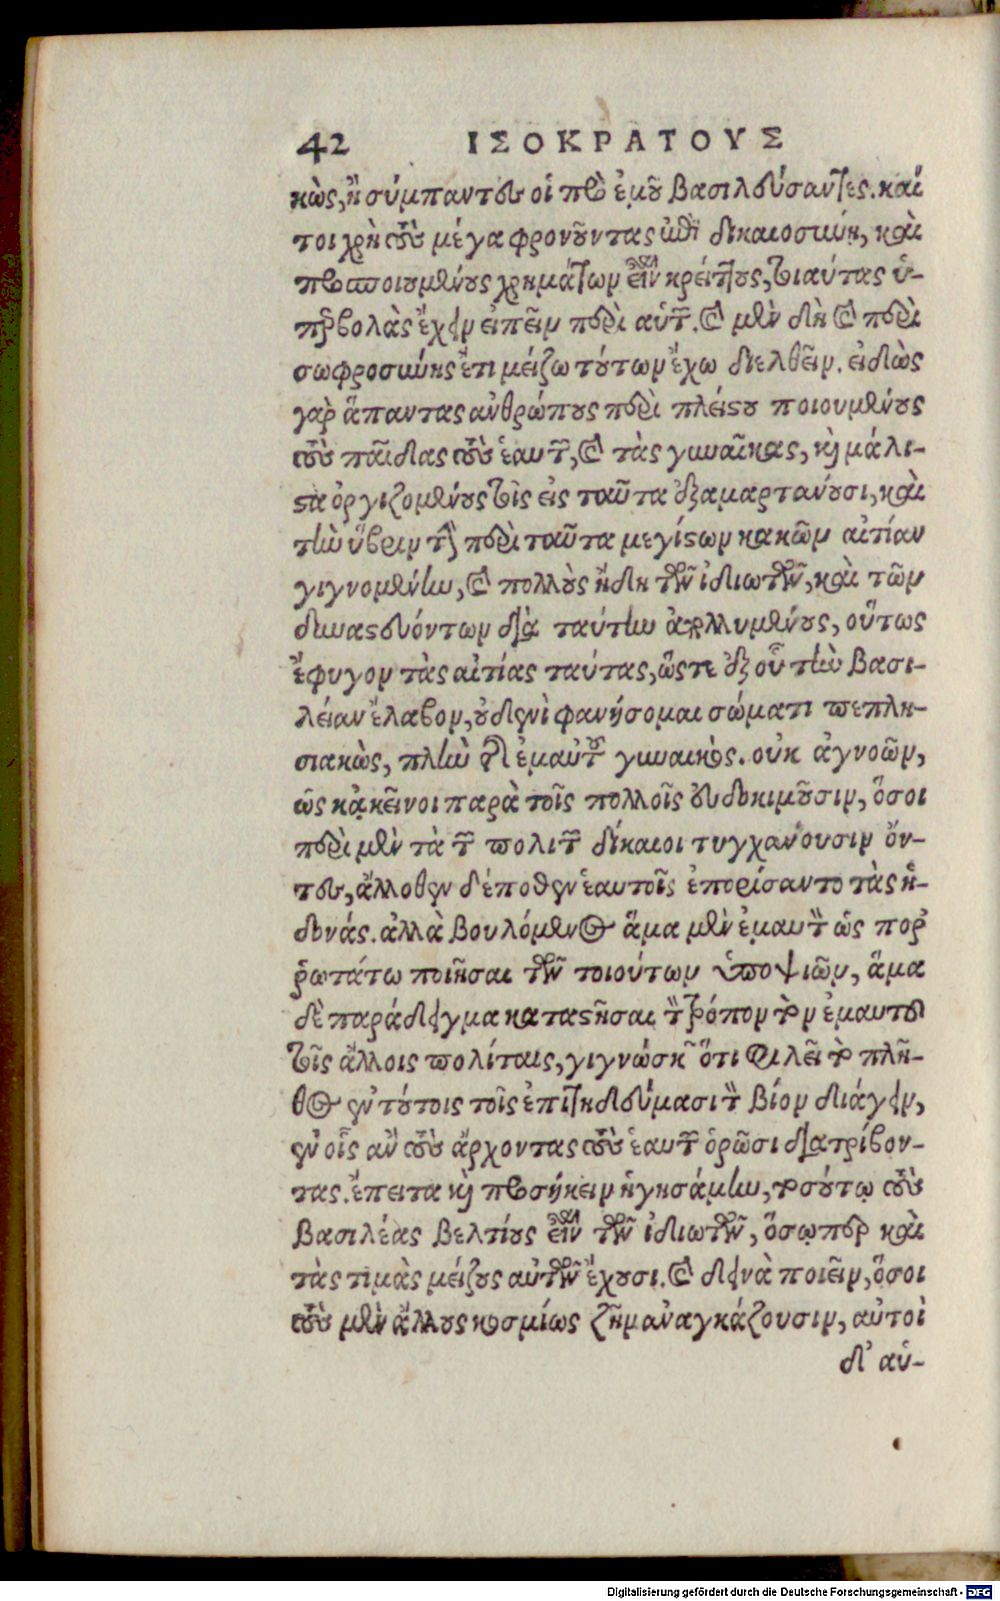 42 ΙΣΟΚΡΑΤΟΥΣ
κὼς, ἢ σύμπαντες οἱ πρὸ ἐμοῦ βασιλεύσαντες. καί
τοι χρὴ τοὺς μέγα φρονοῦντας ἐπὶ δικαιοσύνῃ, καὶ
προσποιουμένους χρημάτων εἶναι κρείττους, τοιαύτας ὑ-
περβολὰς ἔχειν εἰπεῖν περὶ αὑτῶν. καὶ μὲν δὴ καὶ περὶ
σωφροσύνης ἔτι μείζω τούτων ἔχω διελθεῖν. εἰδὼς
γὰρ ἅπαντας ἀνθρώπους περὶ πλείστου ποιουμένους
τοὺς παῖδας τοὺς ἑαυτῶν, καὶ τὰς γυναῖκας, καὶ μάλι-
στα ὀργιζομένους τοῖς εἰς ταῦτα ἐξαμαρτανουσι, καὶ
τὴν ὕβριν τὴν περὶ ταῦτα μεγίστων κακῶν αἰτίαν
γιγνομένην, καὶ πολλοὺς ἤδη τῶν ἰδιωτῶν, καὶ τῶν
δυναστευόντων διὰ ταύτην ἀπολλυμένους, οὕτως
ἔφυγον τὰς αἰτίας ταύτας, ὥστε ἐξ οὗ τὴν βασι-
λείαν ἔλαβον, οὐδενὶ φανήσομαι σώματι πεπλη-
σιακὼς, πλὴν τῆς ἐμαυτοῦ γυναικός. οὐκ ἀγνοῶν,
ὡς κἀκεῖνοι παρὰ τοῖς πολλοῖς εὐδοκιμοῦσιν, ὅσοι
περὶ μὲν τὰ τῶν πολιτῶν δίκαιοι τυγχανουσιν ὄν-
τες, ἄλλοθεν δέ ποθεν ἑαυτοῖς ἐπορίσαντο τὰς ἡ-
δονάς. ἀλλὰ βουλόμενος ἅμα μὲν ἐμαυτὸν ὡς ποῤ
ῥωτάτω ποιῆσαι τῶν τοιούτων ὑποψιῶν, ἅμα
δὲ παράδειγμα καταστῆσαι τὸν τρόπον τὸν ἐμαυτοῦ
τοῖς ἄλλοις πολίταις, γιγνώσκων ὅτι φιλεῖ τὸ πλῆ-
θος ἐν τούτοις τοῖς ἐπιτηδεύμασι τὸν βίον διάγειν,
ἐν οἷς ἂν τοὺς ἄρχοντας τοὺς ἑαυτῶν ὁρῶσι διατρίβον-
τας. ἔπειτα καὶ προσήκειν ἡγησάμην, τοσούτῳ τοὺς
βασιλέας βελτίους εἶναι τῶν ἰδιωτῶν, ὅσῳπερ καὶ
τὰς τιμὰς μείζους αὐτῶν ἔχουσι. καὶ δεινὰ ποιεῖν, ὅσοι
τοὺς μὲν ἄλλους κοσμίως ζῆν ἀναγκάζουσιν, αὐτοὶ
δ᾽ αὑ-
Digitalisierung gefördert durch die Deutsche Forschungsgemeinschaft - DFG